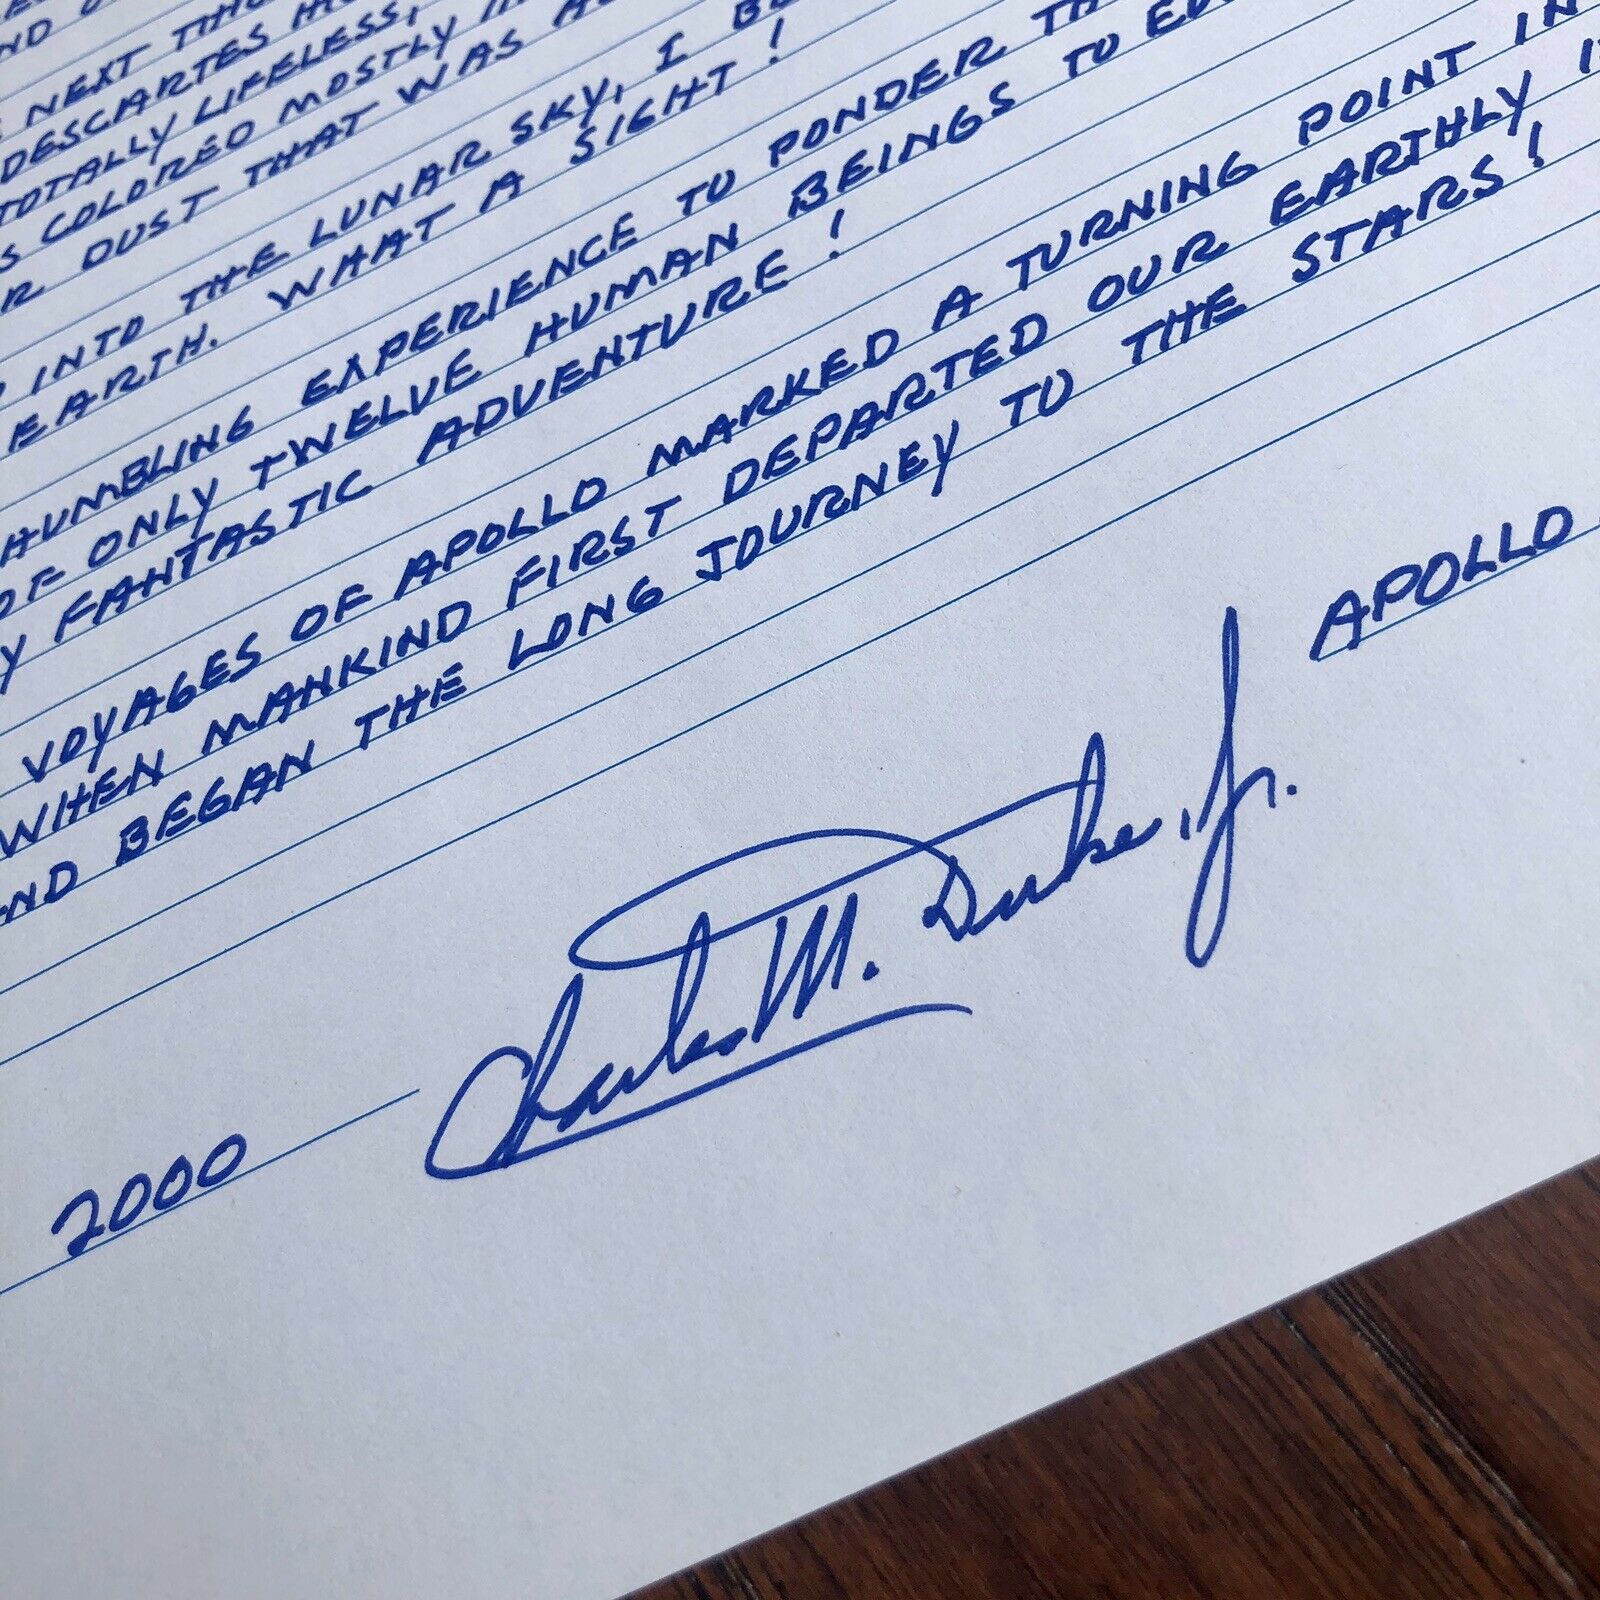 NEXT
DESCARTES
TOTALLY LIFELESS,
COLORED MOSTLY
DUST THAT WAS
INTO THE LUNAR SKY, I
EARTH. WHAT A SIGHT!
HUMBLING EXPERIENCE TO PONDER
OF ONLY TWELVE HUMAN BEINGS TO
FANTASTIC ADVENTURE!
VOYAGES OF APOLLO MARKED A TURNING POINT IN
WHEN MANKIND FIRST DEPARTED OUR EARTHLY
BEGAN THE LONG JOURNEY TO THE STARS!
2000 Charles M. Duke, Jr. APOLLO